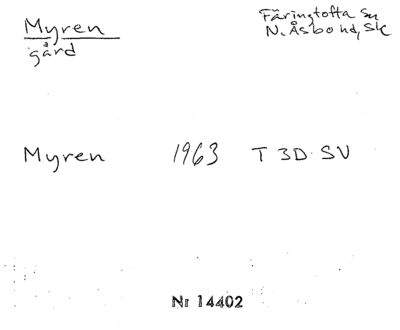 Myren
gård
Färingtofta Sn
N. Åsbo hd, Sk
Myren 1963 T 3D SV
Nr 14402